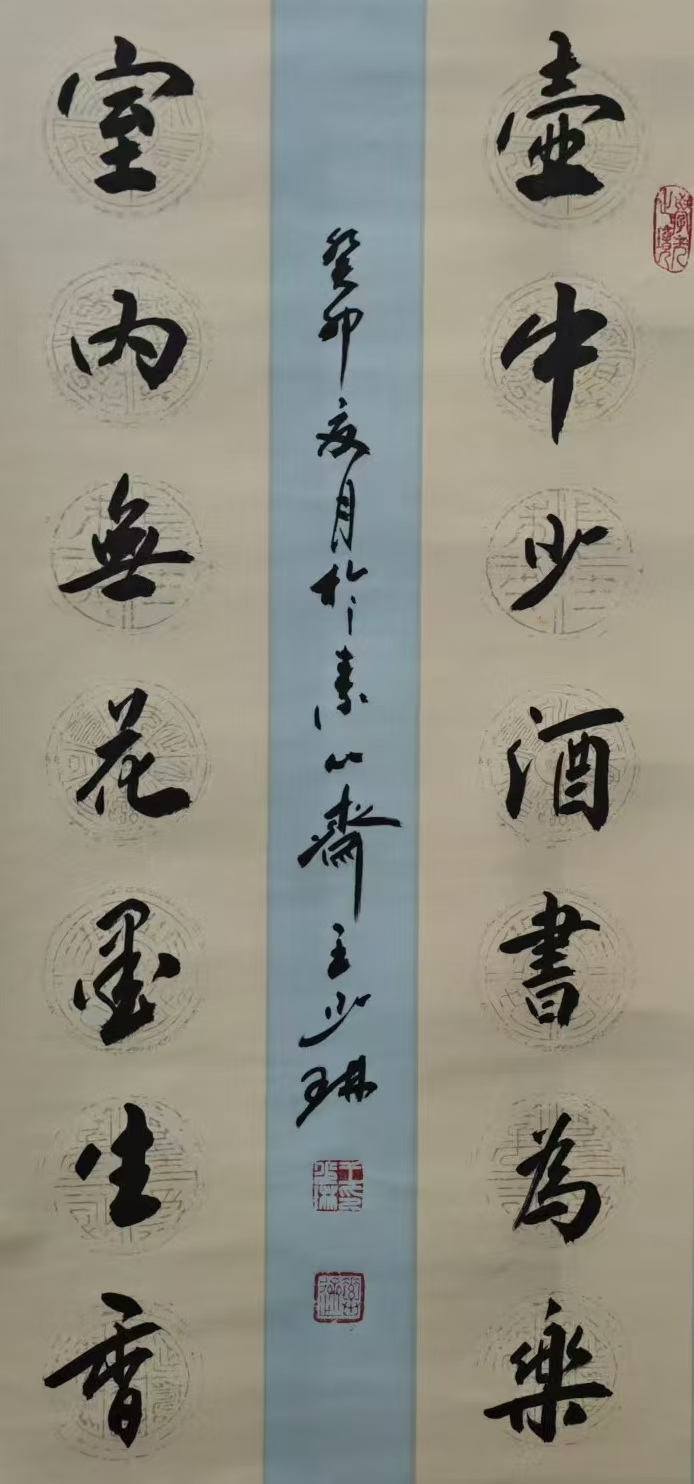 壺中少酒書為樂
室內無花墨生香
癸卯夏月於素心齋王少琳